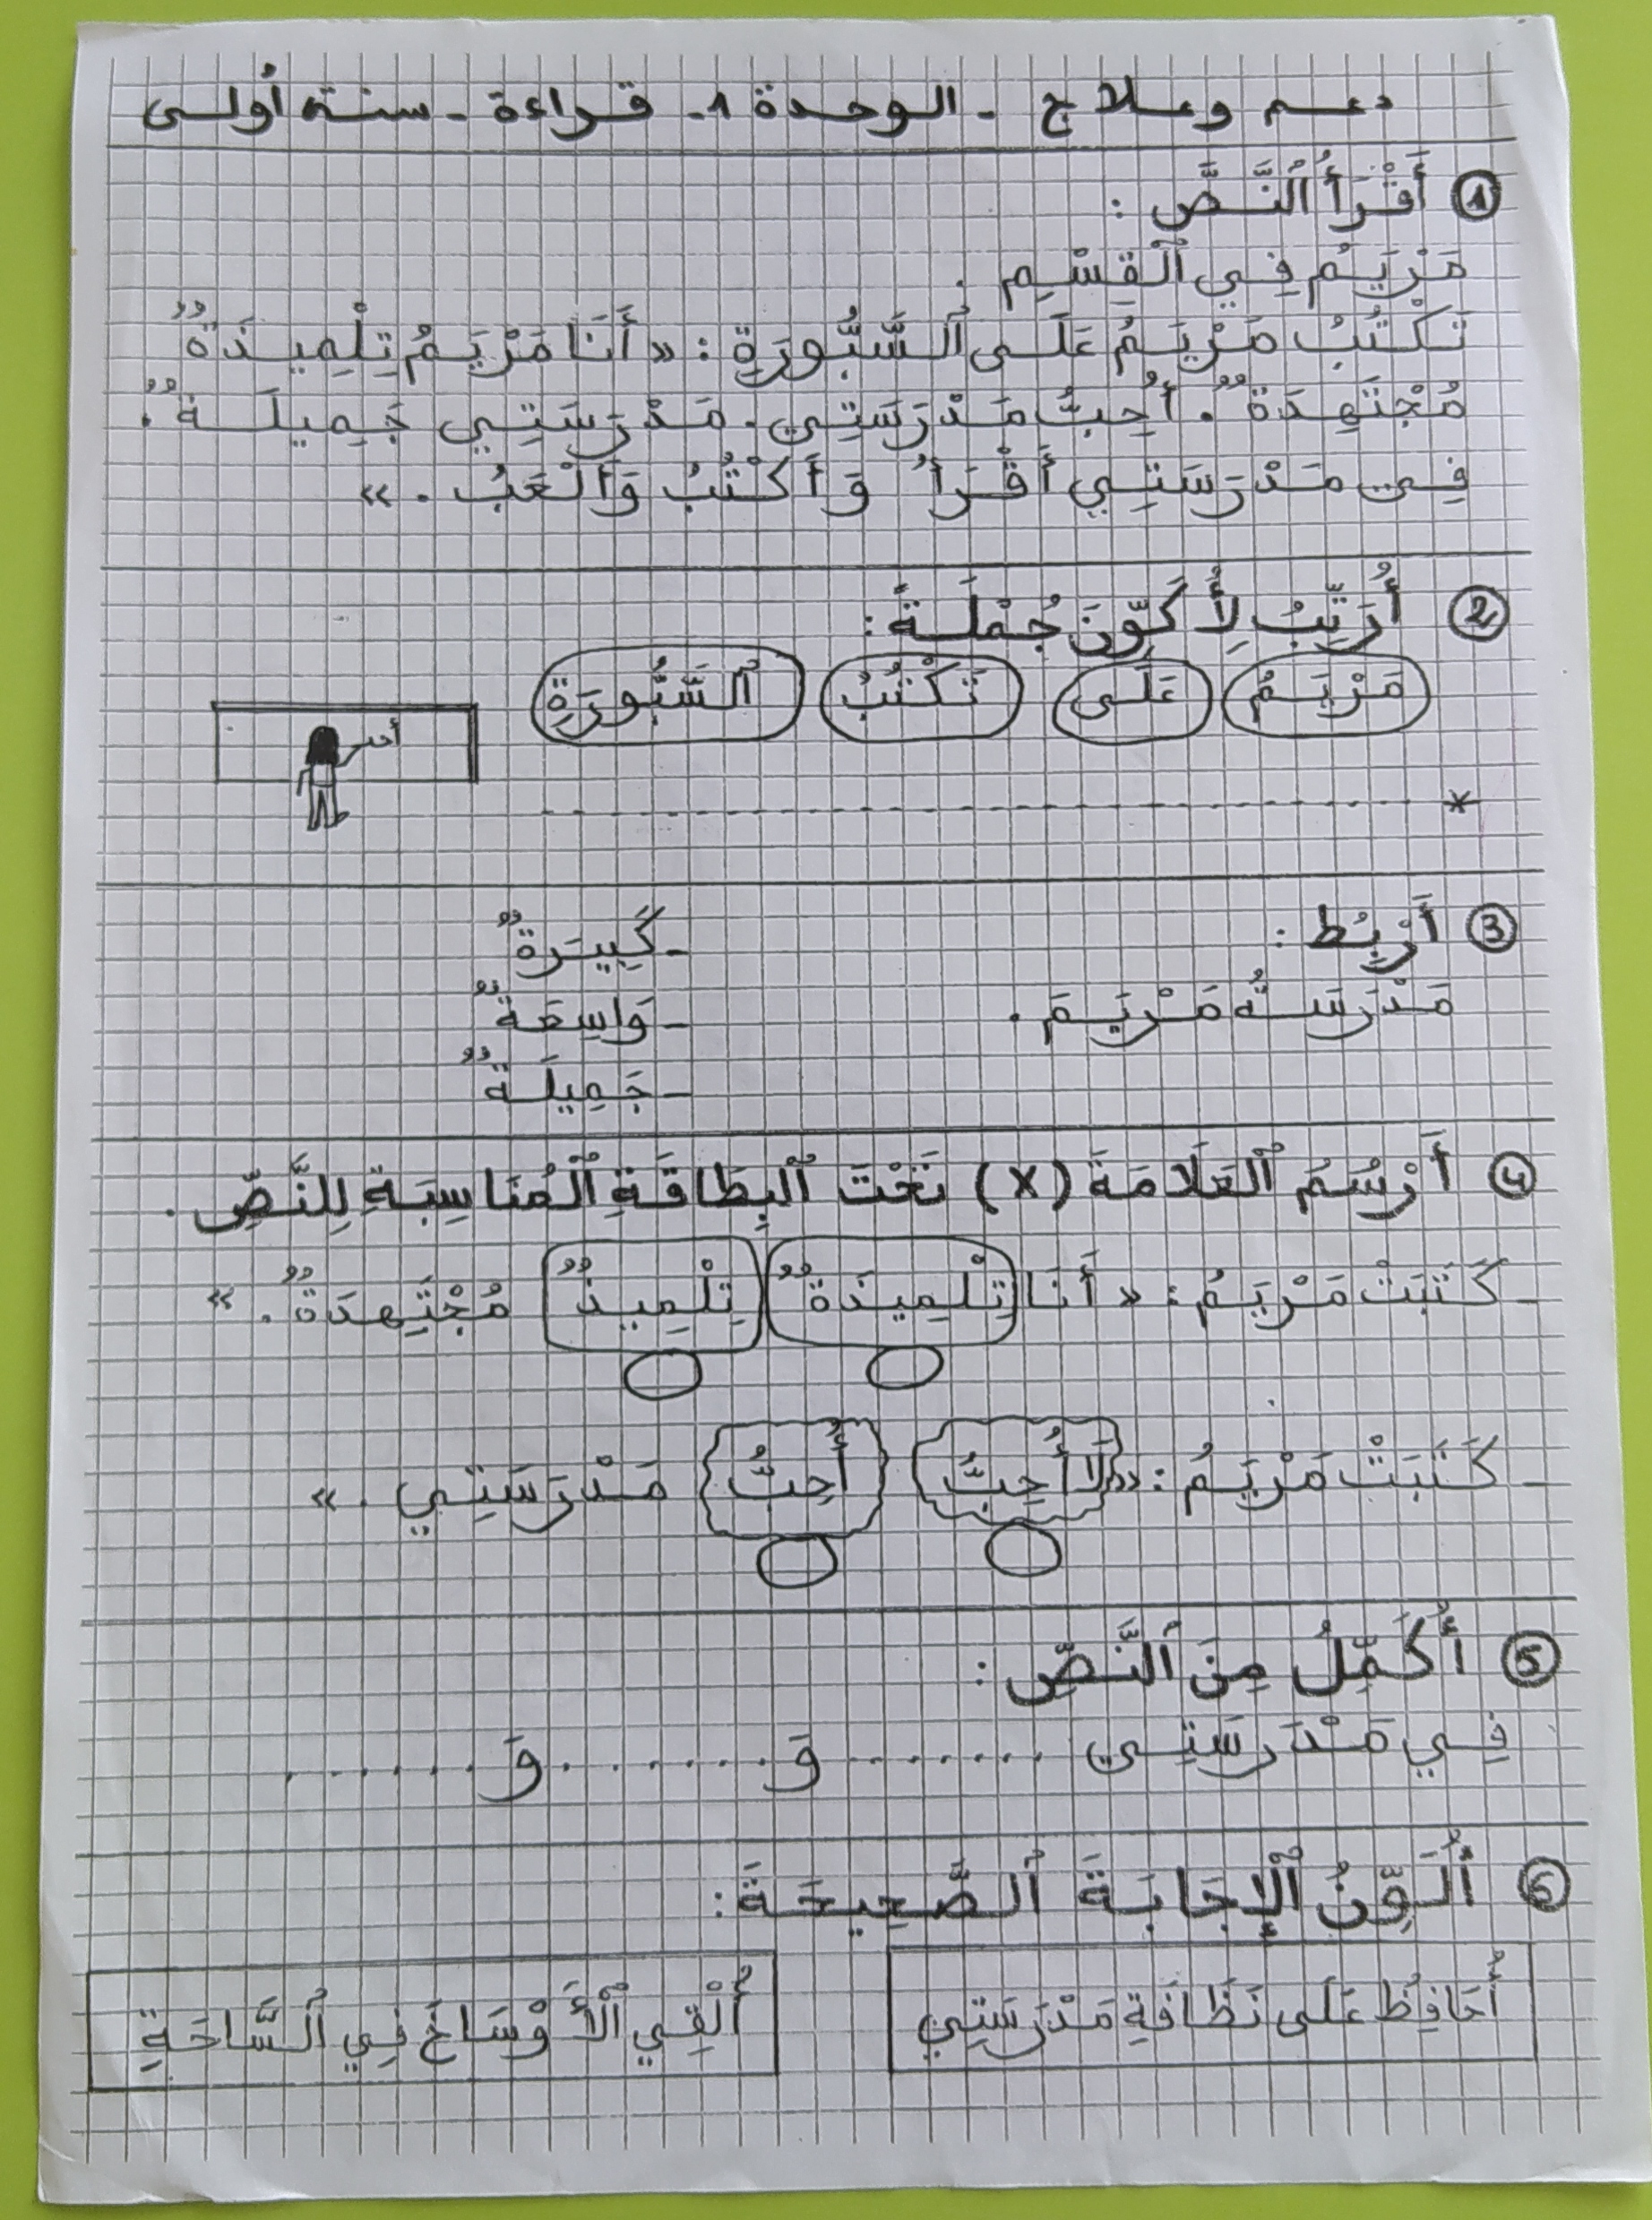 دعم وعلاج - الوحدة 1 - قراءة - سنة أولى
① أَقْرَأُ ٱلنَّصَّ :
مَرْيَمُ فِي ٱلْقِسْمِ .
تَكْتُبُ مَرْيَمُ عَلَى ٱلسَّبُّورَةِ : « أَنَا مَرْيَمُ تِلْمِيذَةٌ
مُجْتَهِدَةٌ . أُحِبُّ مَدْرَسَتِي . مَدْرَسَتِي جَمِيلَةٌ .
فِي مَدْرَسَتِي أَقْرَأُ وَأَكْتُبُ وَأَلْعَبُ . »
② أُرَتِّبُ لِأُكَوِّنَ جُمْلَةً :
مَرْيَمُ عَلَى تَكْتُبُ ٱلسَّبُّورَةِ
أحب
* ..............................
③ أَرْبِطُ :
- كَبِيرَةٌ
مَدْرَسَةُ مَرْيَمَ . - وَاسِعَةٌ
- جَمِيلَةٌ
④ أَرْسُمُ ٱلْعَلَامَةَ (X) تَحْتَ ٱلْبِطَاقَةِ ٱلْمُنَاسِبَةِ لِلنَّصِّ .
- كَتَبَتْ مَرْيَمُ : « أَنَا تِلْمِيذَةٌ تِلْمِيذٌ مُجْتَهِدَةٌ . »
- كَتَبَتْ مَرْيَمُ : « لَا أُحِبُّ أُحِبُّ مَدْرَسَتِي . »
⑤ أُكَمِّلُ مِنَ ٱلنَّصِّ :
فِي مَدْرَسَتِي ....... وَ ....... وَ .......
⑥ أُلَوِّنُ ٱلْإِجَابَةَ ٱلصَّحِيحَةَ :
أُحَافِظُ عَلَى نَظَافَةِ مَدْرَسَتِي أُلْقِي ٱلْأَوْسَاخَ فِي ٱلسَّاحَةِ